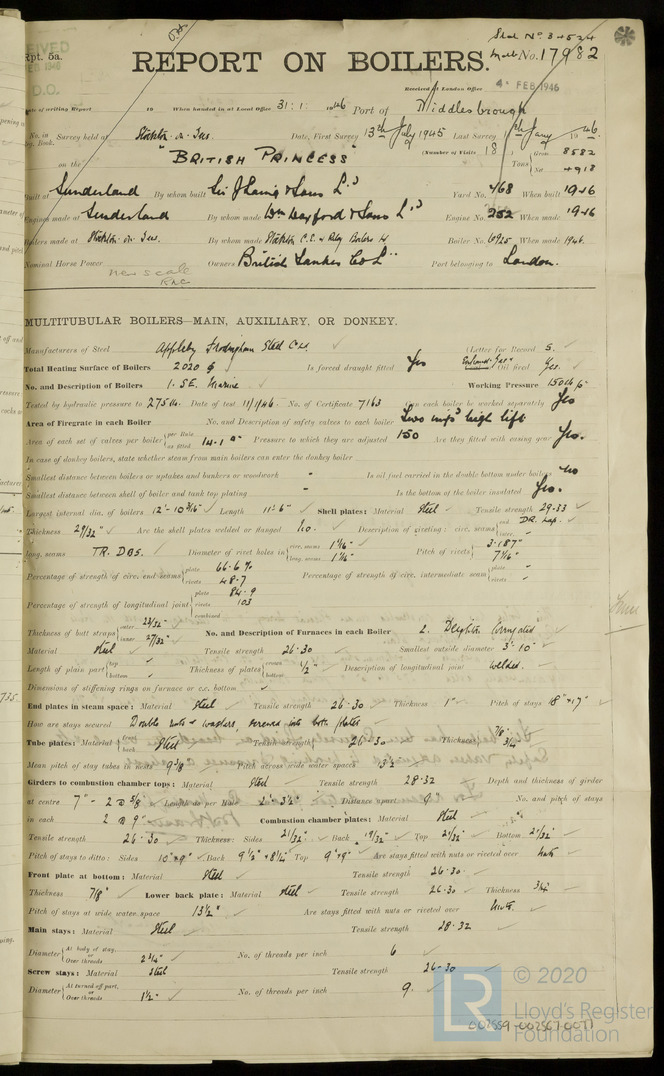 Sld No 34524
Rpt. 5a.
REPORT ON BOILERS.
Mdb No. 17982
Received at London Office
4 FEB 1946
Date of writing Report 19 When handed in at Local Office 31.1. 1946 Port of Middlesbrough
No. in Reg. Book. Survey held at Stockton-on-Tees. Date, First Survey 13th July 1945 Last Survey Jany 1946.
(Number of Visits 18) Gross 8582
on the "BRITISH PRINCESS" Tons Net 4918
Built at Sunderland By whom built Sir J Laing & Sons Ld Yard No. 768 When built 1946
Engines made at Sunderland By whom made Wm Doxford & Sons Ld Engine No. 252 When made 1946
Boilers made at Stockton-on-Tees. By whom made Stockton C.E. & Riley Boilers Ld Boiler No. 6925 When made 1946.
Nominal Horse Power Owners British Tanker Co Ld Port belonging to London.
new scale
MULTITUBULAR BOILERS—MAIN, AUXILIARY, OR DONKEY.
Manufacturers of Steel Appleby Frodingham Steel Co Ld (Letter for Record S.
Total Heating Surface of Boilers 2020 Is forced draught fitted Yes Exhaust Gas Oil fired Yes.
No. and Description of Boilers 1. SE. Marine Working Pressure 150
Tested by hydraulic pressure to 275 Date of test 11/1/46 No. of Certificate 7163 Can each boiler be worked separately Yes
Area of Firegrate in each Boiler No. and Description of safety valves to each boiler Two high lift
Area of each set of valves per boiler per Rule as fitted 14.1 Pressure to which they are adjusted 150 Are they fitted with easing gear Yes.
In case of donkey boilers, state whether steam from main boilers can enter the donkey boiler
Smallest distance between boilers or uptakes and bunkers or woodwork - Is oil fuel carried in the double bottom under boilers No
Smallest distance between shell of boiler and tank top plating - Is the bottom of the boiler insulated Yes.
Largest internal dia. of boilers 12'-10 3/16" Length 11'-6" Shell plates: Material Steel Tensile strength 29-33
Thickness 29/32" Are the shell plates welded or flanged No. Description of riveting: circ. seams end DR. Lap. inter.
long. seams TR. DBS. Diameter of rivet holes in circ. seams 1 1/16" long. seams 1 1/16" Pitch of rivets 3.187" 7 1/16"
Percentage of strength of circ. end seams plate 66.6% rivets 48.7 Percentage of strength of circ. intermediate seam plate rivets
Percentage of strength of longitudinal joint plate 84.9 rivets 103 combined
Thickness of butt straps outer 23/32" inner 27/32" No. and Description of Furnaces in each Boiler 2. Deighton Corrugated
Material Steel Tensile strength 26-30 Smallest outside diameter 3'-10"
Length of plain part top bottom Thickness of plates crown bottom 1/2" Description of longitudinal joint Welded.
Dimensions of stiffening rings on furnace or c.c. bottom
End plates in steam space: Material Steel Tensile strength 26-30 Thickness 1" Pitch of stays 18"x17"
How are stays secured Double nuts & washers, screwed into both plates
Tube plates: Material front back Steel Tensile strength 26-30 Thickness 7/8" 3/4"
Mean pitch of stay tubes in nests 9 3/8 Pitch across wide water spaces 13 1/2
Girders to combustion chamber tops: Material Steel Tensile strength 28-32 Depth and thickness of girder
at centre 7"-2 @ 5/8" Length as per Rule 2'-3 1/2" Distance apart 9 No. and pitch of stays
in each 2 @ 9" Combustion chamber plates: Material Steel
Tensile strength 26-30 Thickness: Sides 21/32" Back 19/32" Top 21/32" Bottom 21/32"
Pitch of stays to ditto: Sides 10"x9" Back 9 1/2"x8 1/2" Top 9"x9" Are stays fitted with nuts or riveted over Nuts
Front plate at bottom: Material Steel Tensile strength 26-30
Thickness 7/8" Lower back plate: Material Steel Tensile strength 26-30 Thickness 3/4
Pitch of stays at wide water space 13 1/2" Are stays fitted with nuts or riveted over Nuts.
Main stays: Material Steel Tensile strength 28-32
Diameter At body of stay, or Over threads 2 3/4" No. of threads per inch 6
Screw stays: Material Steel Tensile strength 26-30
Diameter At turned off part, or Over threads 1 1/2" No. of threads per inch 9.
© 2020
LR Lloyd's Register
Foundation
002559-002567-0071